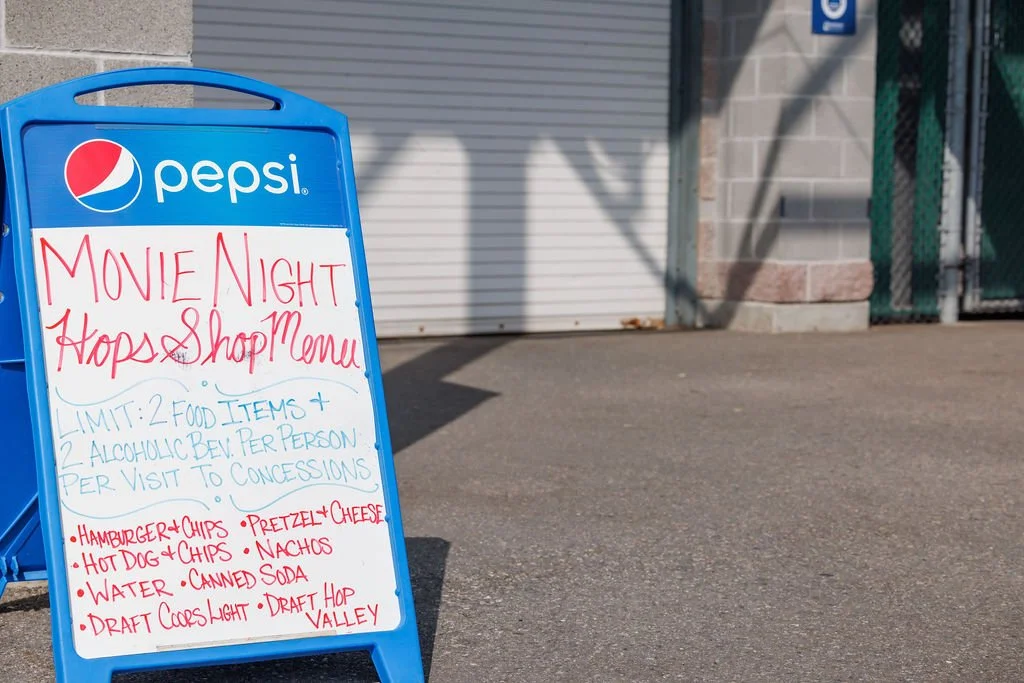 pepsi
MOVIE NIGHT
Hops Shop Menu
LIMIT: 2 FOOD ITEMS +
2 ALCOHOLIC BEV. PER PERSON
PER VISIT TO CONCESSIONS
• HAMBURGER + CHIPS • PRETZEL + CHEESE
• HOT DOG + CHIPS • NACHOS
• WATER • CANNED SODA
• DRAFT COORS LIGHT • DRAFT HOP
VALLEY